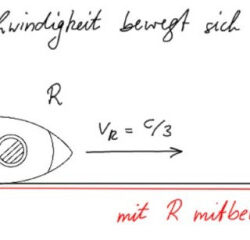 hwindigkeit bewegt sich
R
V_R = c/3
mit R mitbe